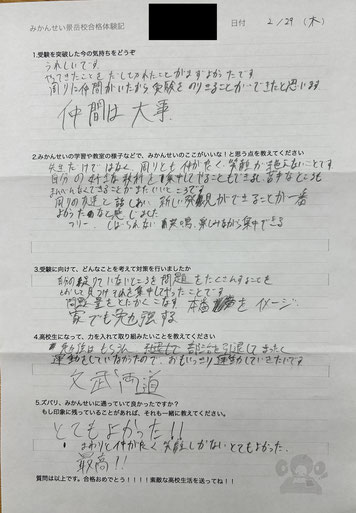 みかんせい景岳校合格体験記
日付 2/29 (木)
1.受験を突破した今の気持ちをどうぞ
うれしいです
やってきたことをだしてつかれたことがまずよかったです
周りに仲間がいたから受験をのりきることができたと思います
仲間は大事
2.みかんせいの学習や教室の様子などで、みかんせいのここがいいな！と思う点を教えてください
先生だけではなく、周りとも仲がよく、笑顔が絶えないことです
自分の好きな教科を集中してやることもできるし、苦手なところも
まんべんなくできることがまたいいところです
周りの友達と話しあい新しい発見ができることが一番
よかったのなと感じました
フリー、しばられない 楽しみながら集中できる
3.受験に向けて、どんなことを考えて対策を行いましたか
自分の足りていないところを問題をたくさんすることを
して見つけてそれを集中してやったことです
問題量をとにかくこなす 本番をイメージ
家でも勉強する
4.高校生になって、力を入れて取り組みたいことを教えてください
勉強はもちろん 部活を引退してまったく
運動をしていなかったので、おもいっきり運動もしていきたいです
文武両道
5.ズバリ、みかんせいに通っていて良かったですか？
もし印象に残っていることがあれば、それも一緒に教えてください。
とてもよかった!!
・まわりと仲がよく笑顔しかない とてもよかった。
最高!!
質問は以上です。合格おめでとう！！！！素敵な高校生活を送ってね！！